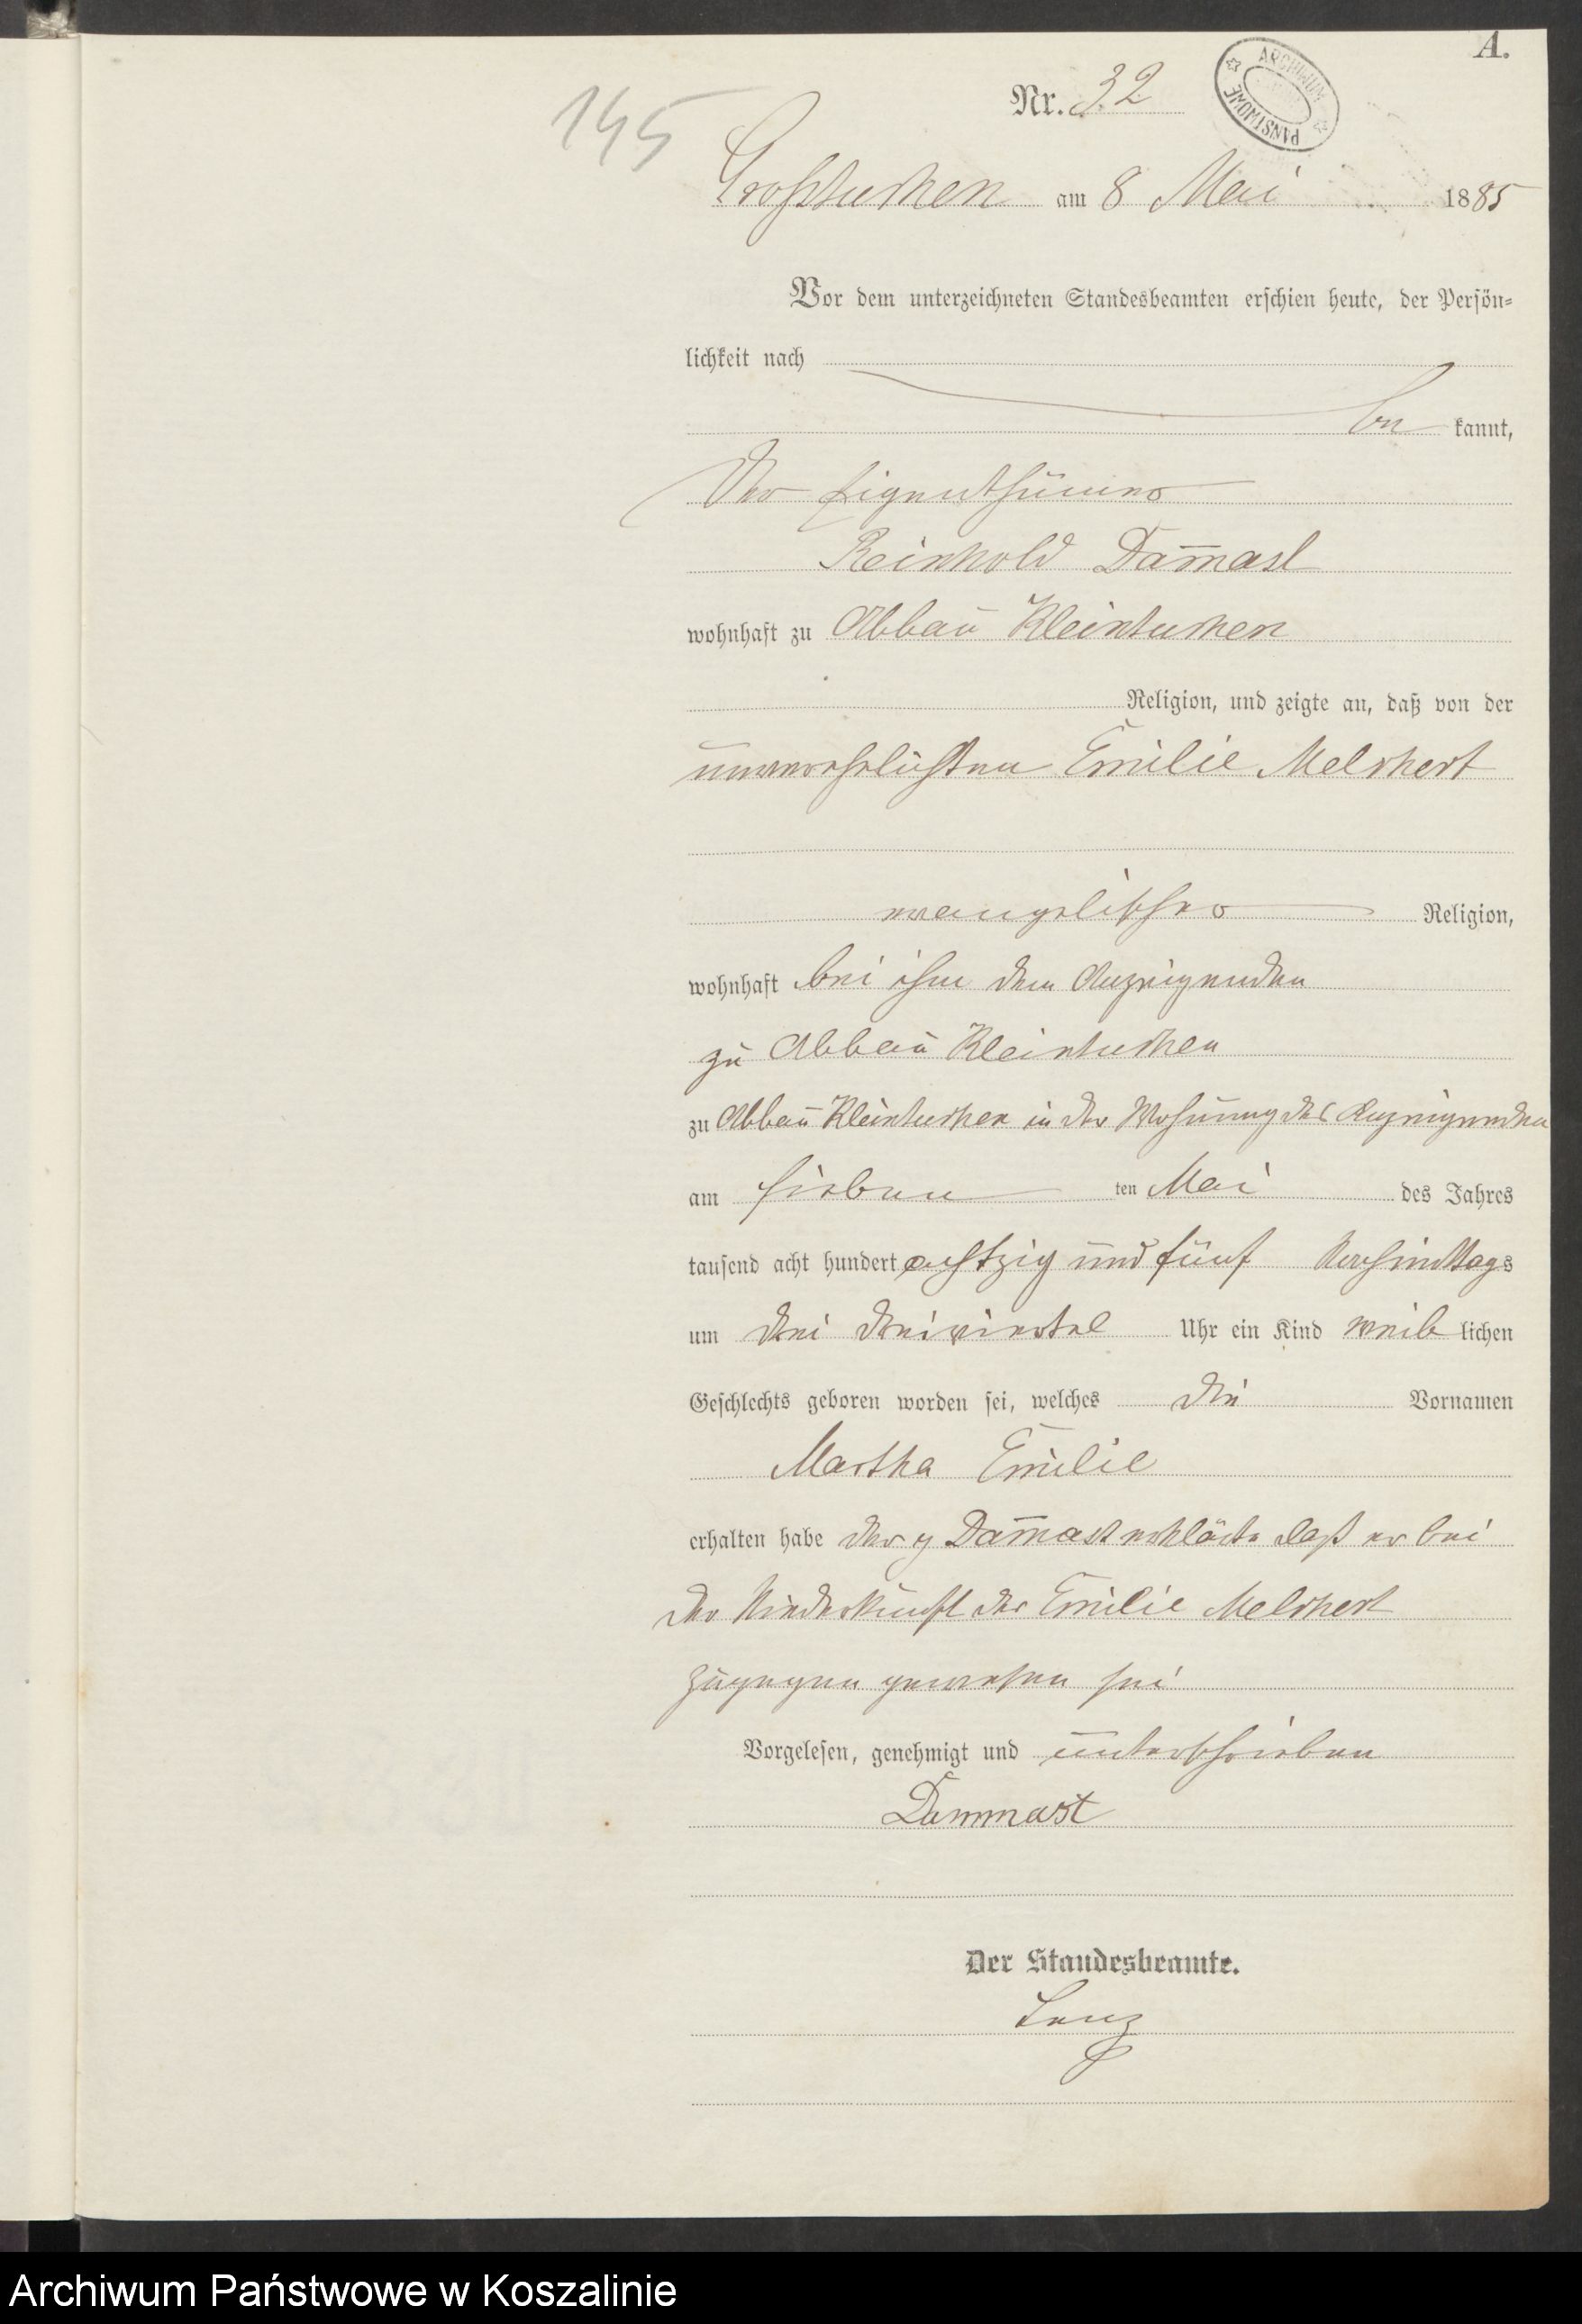 A.
145
Nr. 32
ARCHIWUM PAŃSTWOWE
Großtuchen am 8 Mai 1885
Vor dem unterzeichneten Standesbeamten erschien heute, der Persön-
lichkeit nach
be kannt,
Der Eigenthümer
Reinhold Dam̅ast
wohnhaft zu Abbau Kleintuchen
Religion, und zeigte an, daß von der
unverehelichten Emilie Melchert
evangelischer Religion,
wohnhaft bei ihm dem Anzeigenden
zu Abbau Kleintuchen
zu Abbau Kleintuchen in der Wohnung des Anzeigenden
am sieben ten Mai des Jahres
tausend acht hundert achtzig und fünf Nachmittags
um drei dreiviertel Uhr ein Kind weib lichen
Geschlechts geboren worden sei, welches die Vornamen
Martha Emilie
erhalten habe der p Dam̅ast erklärte daß er bei
der Niederkunft der Emilie Melchert
zugegen gewesen sei
Vorgelesen, genehmigt und unterschrieben
Dammast
Der Standesbeamte.
Lenz
Archiwum Państwowe w Koszalinie